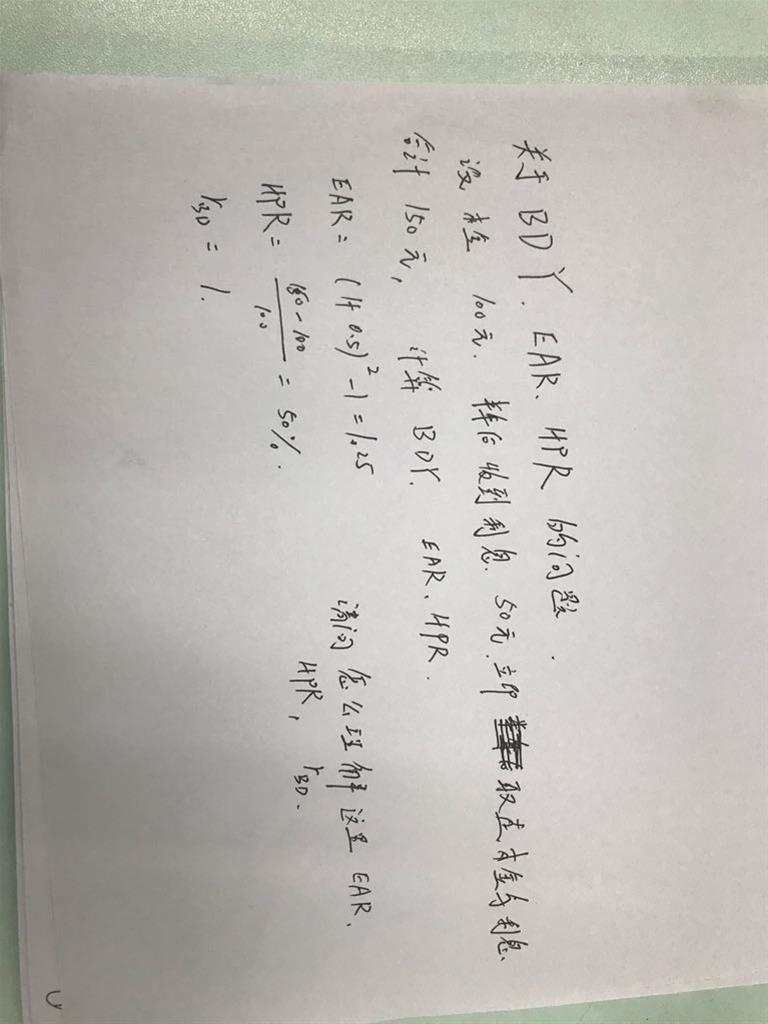 关于 BDY、EAR、HPR 的问题.
设本金 100元. 半年后收到利息 50元. 立即 取走本金与利息、
合计 150元, 计算 BDY. EAR、HPR.
EAR = (1+0.5)² -1 = 1.25
HPR = 150-100 / 100 = 50%.
rBD = 1.
请问怎么理解这里 EAR、
HPR, rBD.